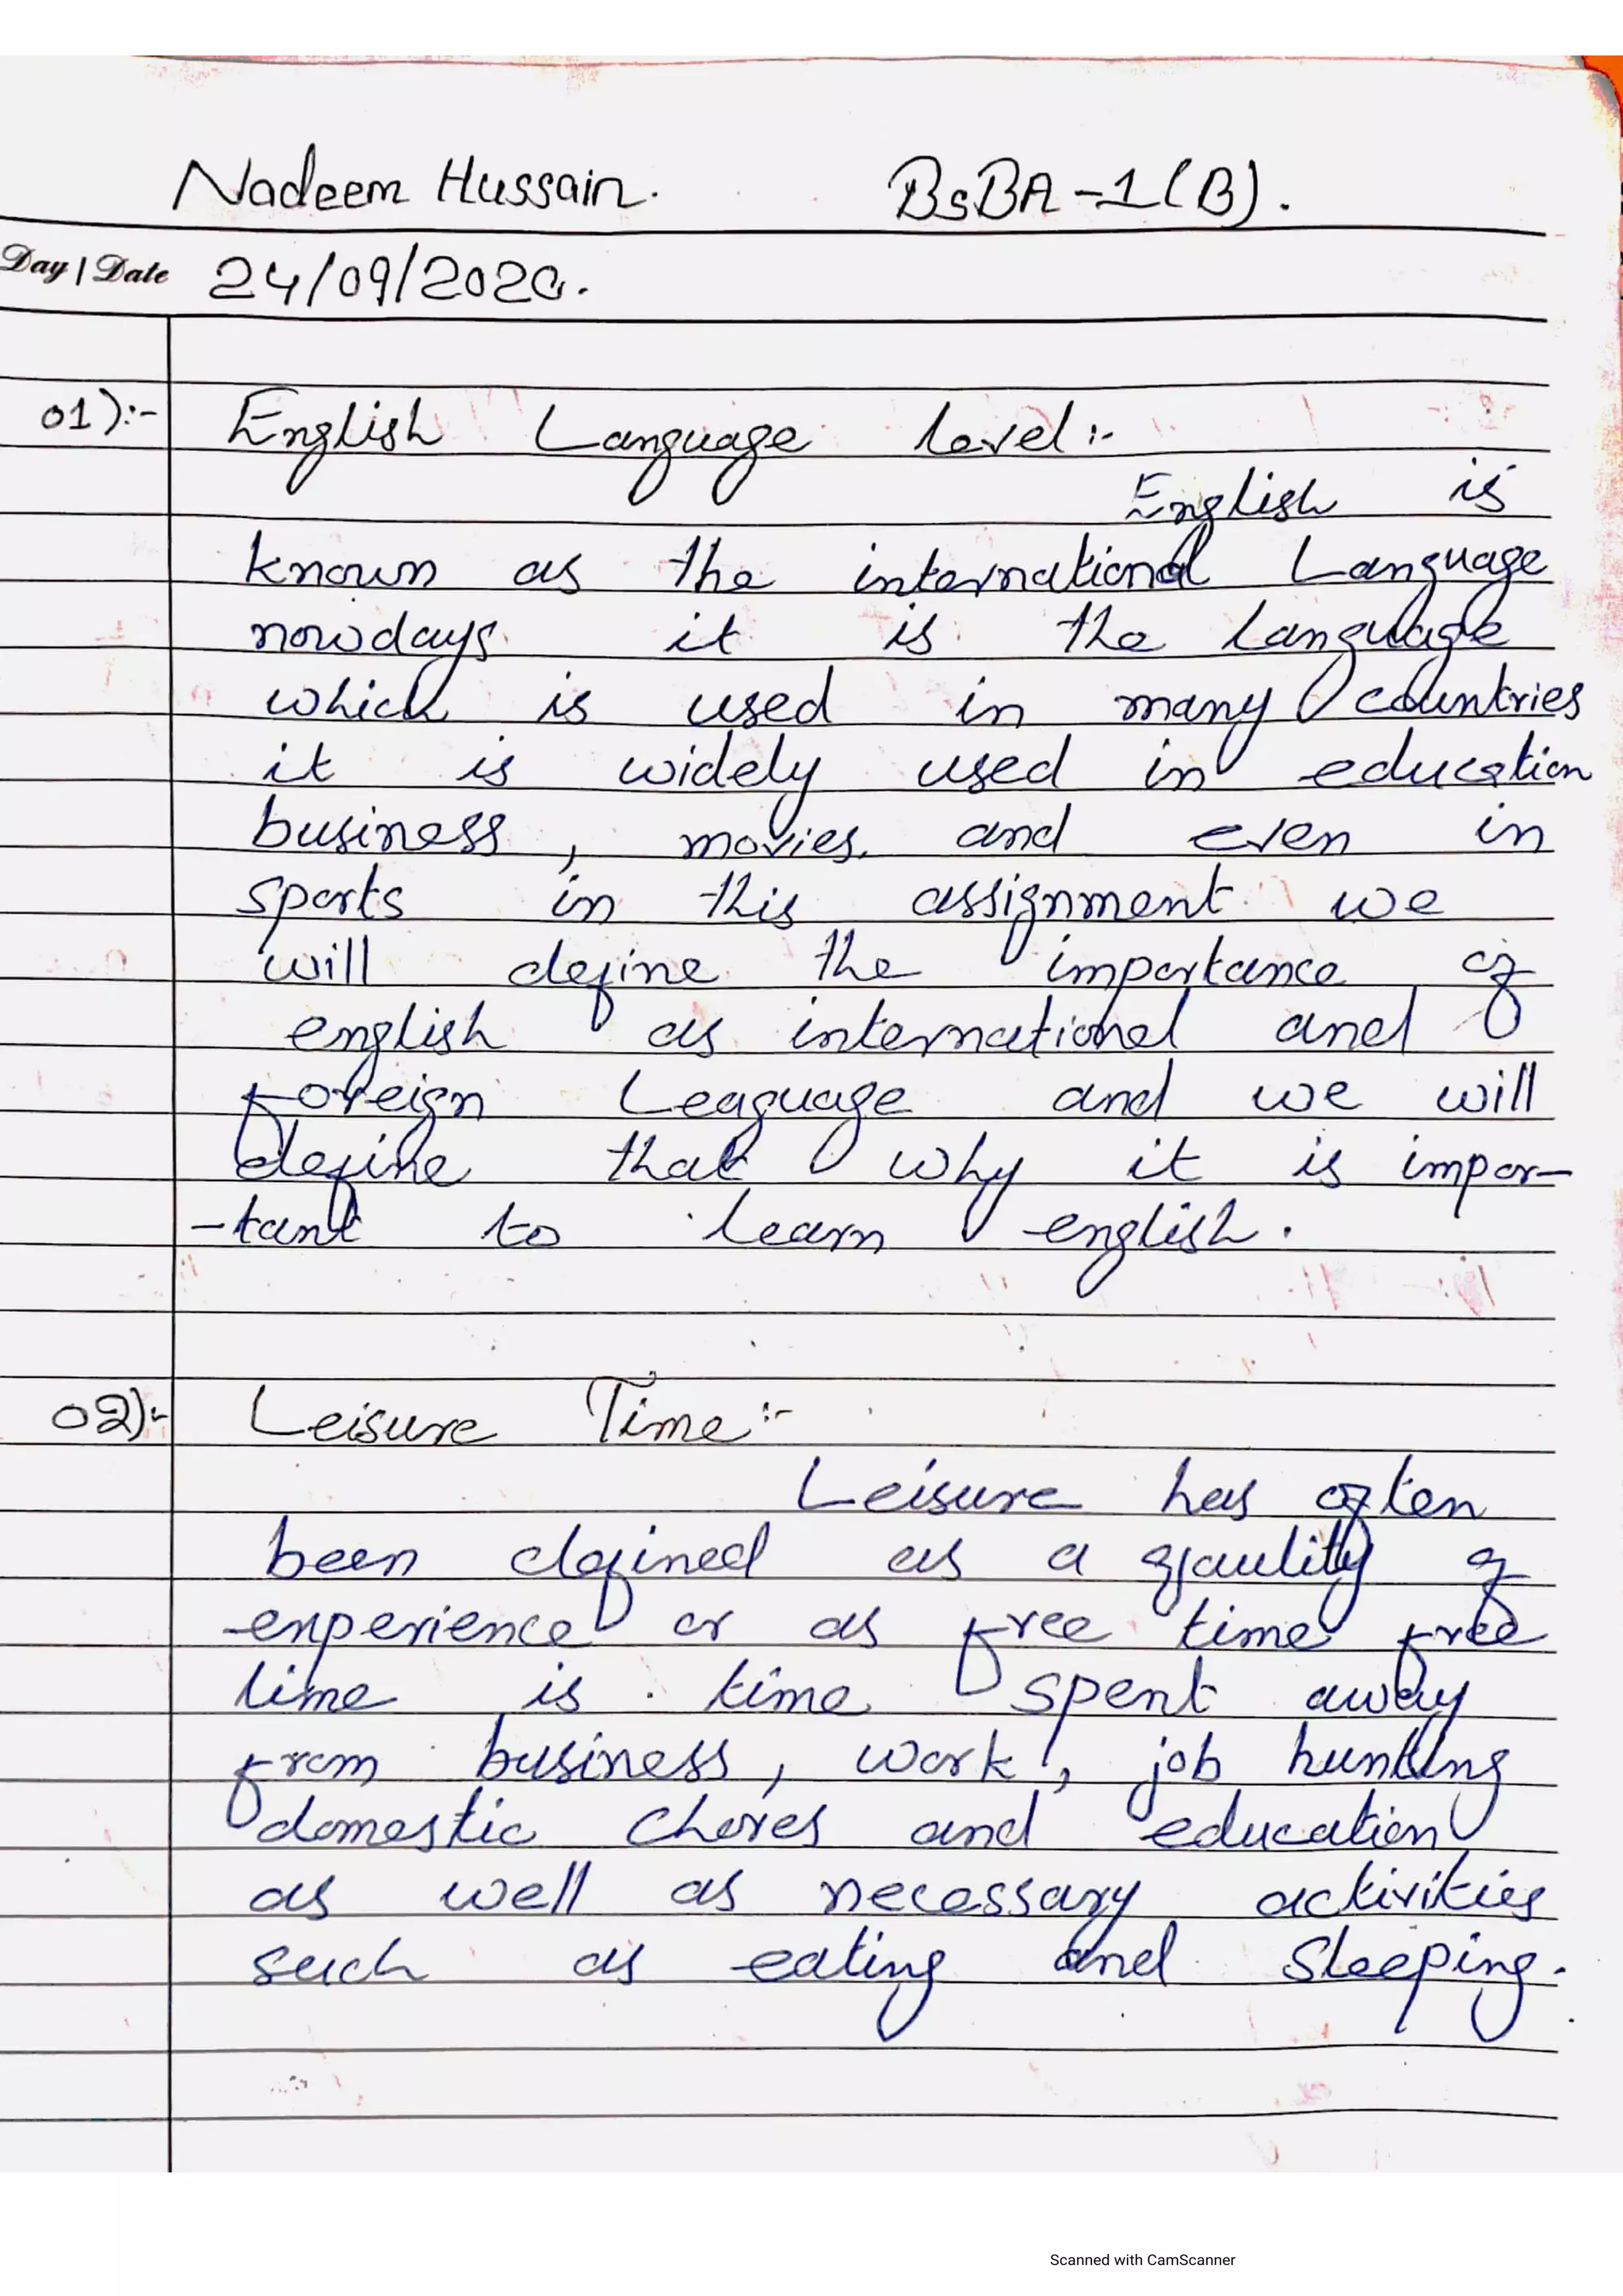 Nadeem Hussain. BsBA-1(B).
Day | Date 24/09/2020.
01):- English Language level:-
English is
known as the international Language
nowdays it is the language
which is used in many countries
it is widely used in education
business, movies. and even in
sports in this assignment we
will define the importance of
english as international and
foreign Leaguage and we will
define that why it is impor-
-tant to learn english.
02):- Leisure Time:-
Leisure has often
been defined as a qaulity of
experience or as free time free
time is time spent away
from business, work, job hunting
domestic chores and education
as well as necessary activities
such as eating and Sleeping.
Scanned with CamScanner